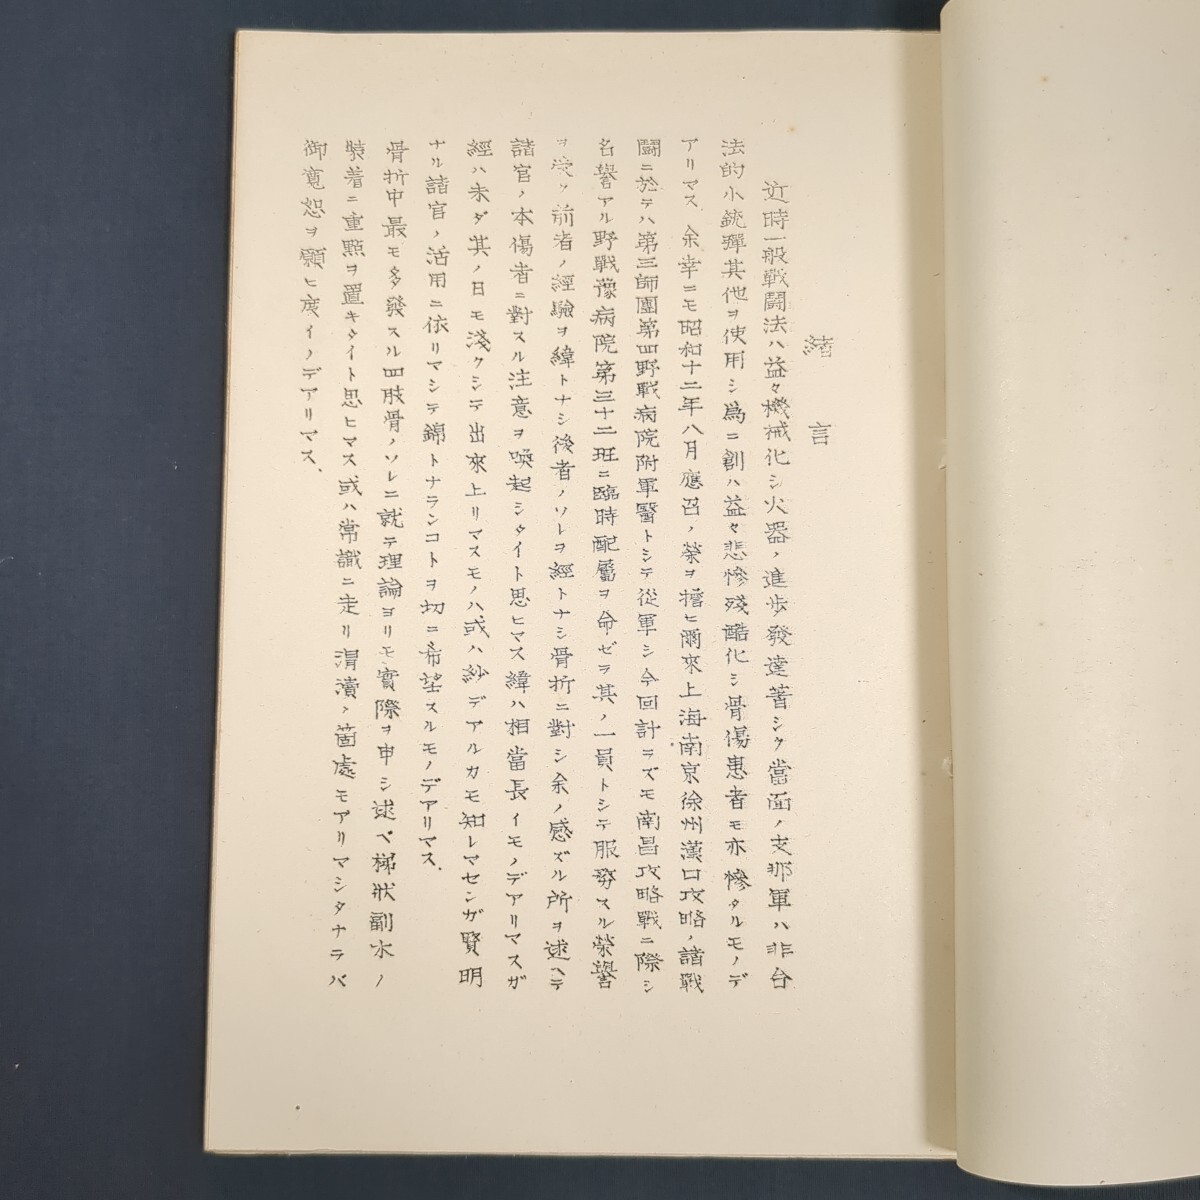 緒言
近時一般戰鬪法ハ益々機械化シ火器ノ進歩發達著シク當面ノ支那軍ハ非合
法的小銃彈其他ヲ使用シ爲ニ創ハ益々悲慘殘酷化シ骨傷患者モ亦慘タルモノデ
アリマス、余幸ニモ昭和十二年八月應召ノ榮ヲ擔ヒ爾來上海南京徐州漢口攻略ノ諸戰
鬪ニ於テハ第三師團第四野戰病院附軍醫トシテ從軍シ今回計ラズモ南昌攻略戰ニ際シ
名譽アル野戰豫病院第三十二班ニ臨時配屬ヲ命ゼラ其ノ一員トシテ服務スル榮譽
ヲ受ケ前者ノ經驗ヲ緯トナシ後者ノソレヲ經トナシ骨折ニ對シ余ノ感ズル所ヲ述ヘテ
諸官ノ本傷者ニ對スル注意ヲ喚起シタイト思ヒマス緯ハ相當長イモノデアリマスガ
經ハ未ダ其ノ日モ淺クシテ出來上リマスモノハ或ハ紗デアルカモ知レマセンガ賢明
ナル諸官ノ活用ニ依リマシテ錦トナランコトヲ切ニ希望スルモノデアリマス、
骨折中最モ多發スル四肢骨ノソレニ就テ理論ヨリモ實際ヲ申シ述ベ梯狀副木ノ
裝着ニ重點ヲ置キタイト思ヒマス或ハ常識ニ走リ涓瀆ノ箇處モアリマシタナラバ
御寬恕ヲ願ヒ度イノデアリマス、